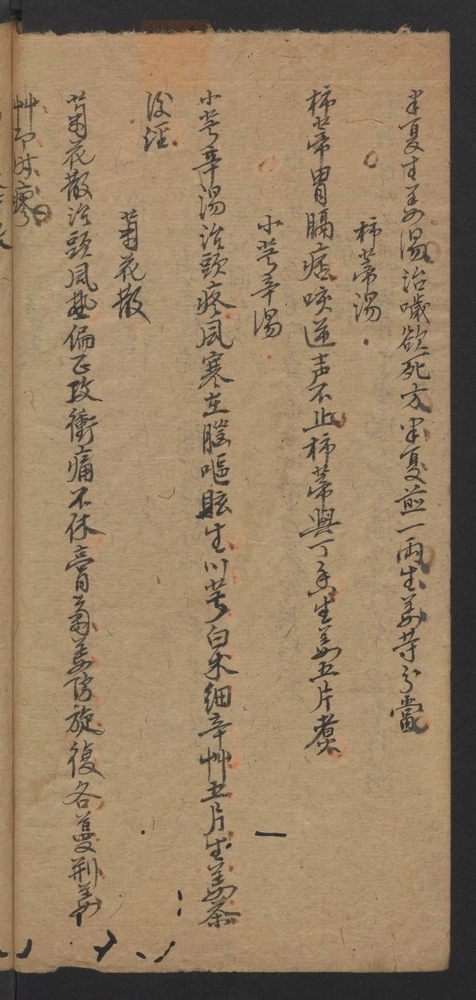 半夏生姜湯治噦欲死方半夏煎一兩生姜等分當
柿蒂湯
柿蒂胃膈痞咳逆声不止柿蒂與丁香生姜五片煮
小芎辛湯
小芎辛湯治頭疼風寒在腦嘔眩生川芎白朮細辛艸五片生姜茶
後注
菊花散
菊花散治頭風熱偏正攻衝痛不休膏菊羌防旋復各蔓荊姜
艸